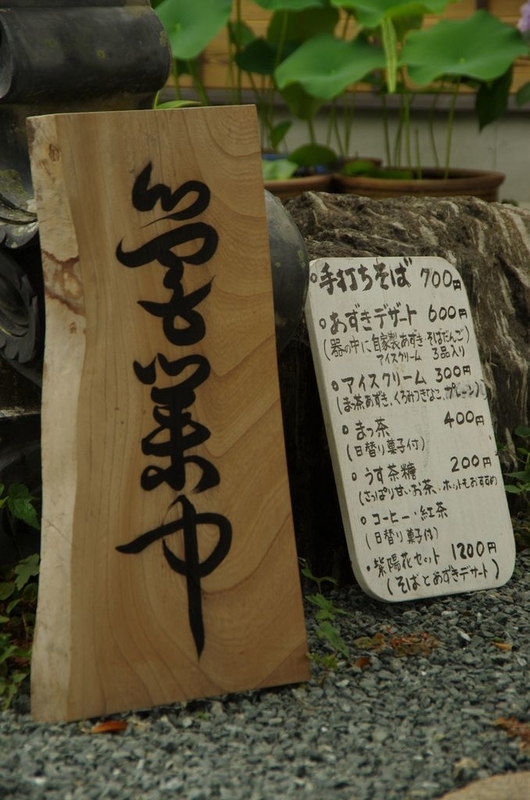 営業中
手打ちそば 700円
あずきデザート 600円
(器の中に自家製あずき・そばだんご
アイスクリーム 3品入り)
アイスクリーム 300円
(まっ茶あずき、くろみつきなこ、プレーン)
まっ茶 400円
(日替り菓子付)
うす茶糖 200円
(さっぱり甘いお茶、ホットもおすすめ
コーヒー・紅茶
(日替り菓子付)
紫陽花セット 1200円
(そばとあずきデザート)